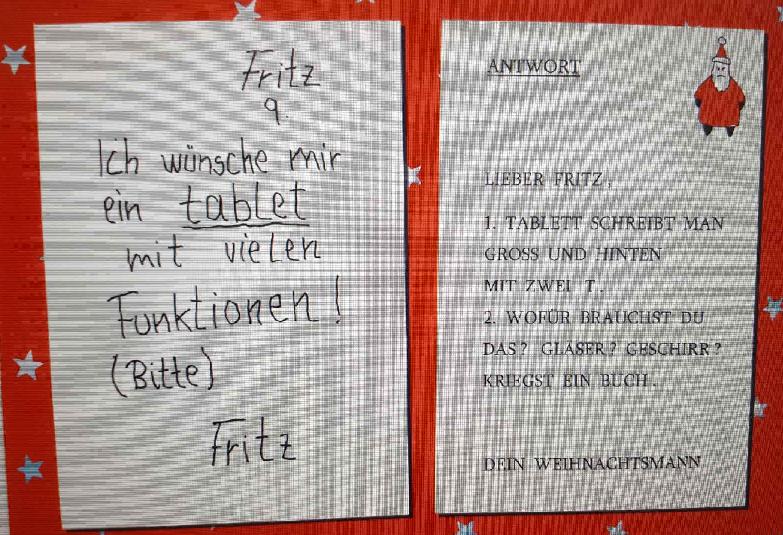 Fritz
9.
Ich wünsche mir
ein tablet
mit vielen
Funktionen!
(Bitte)
Fritz
ANTWORT
LIEBER FRITZ,
1. TABLETT SCHREIBT MAN
GROSS UND HINTEN
MIT ZWEI T.
2. WOFÜR BRAUCHST DU
DAS? GLÄSER? GESCHIRR?
KRIEGST EIN BUCH.
DEIN WEIHNACHTSMANN